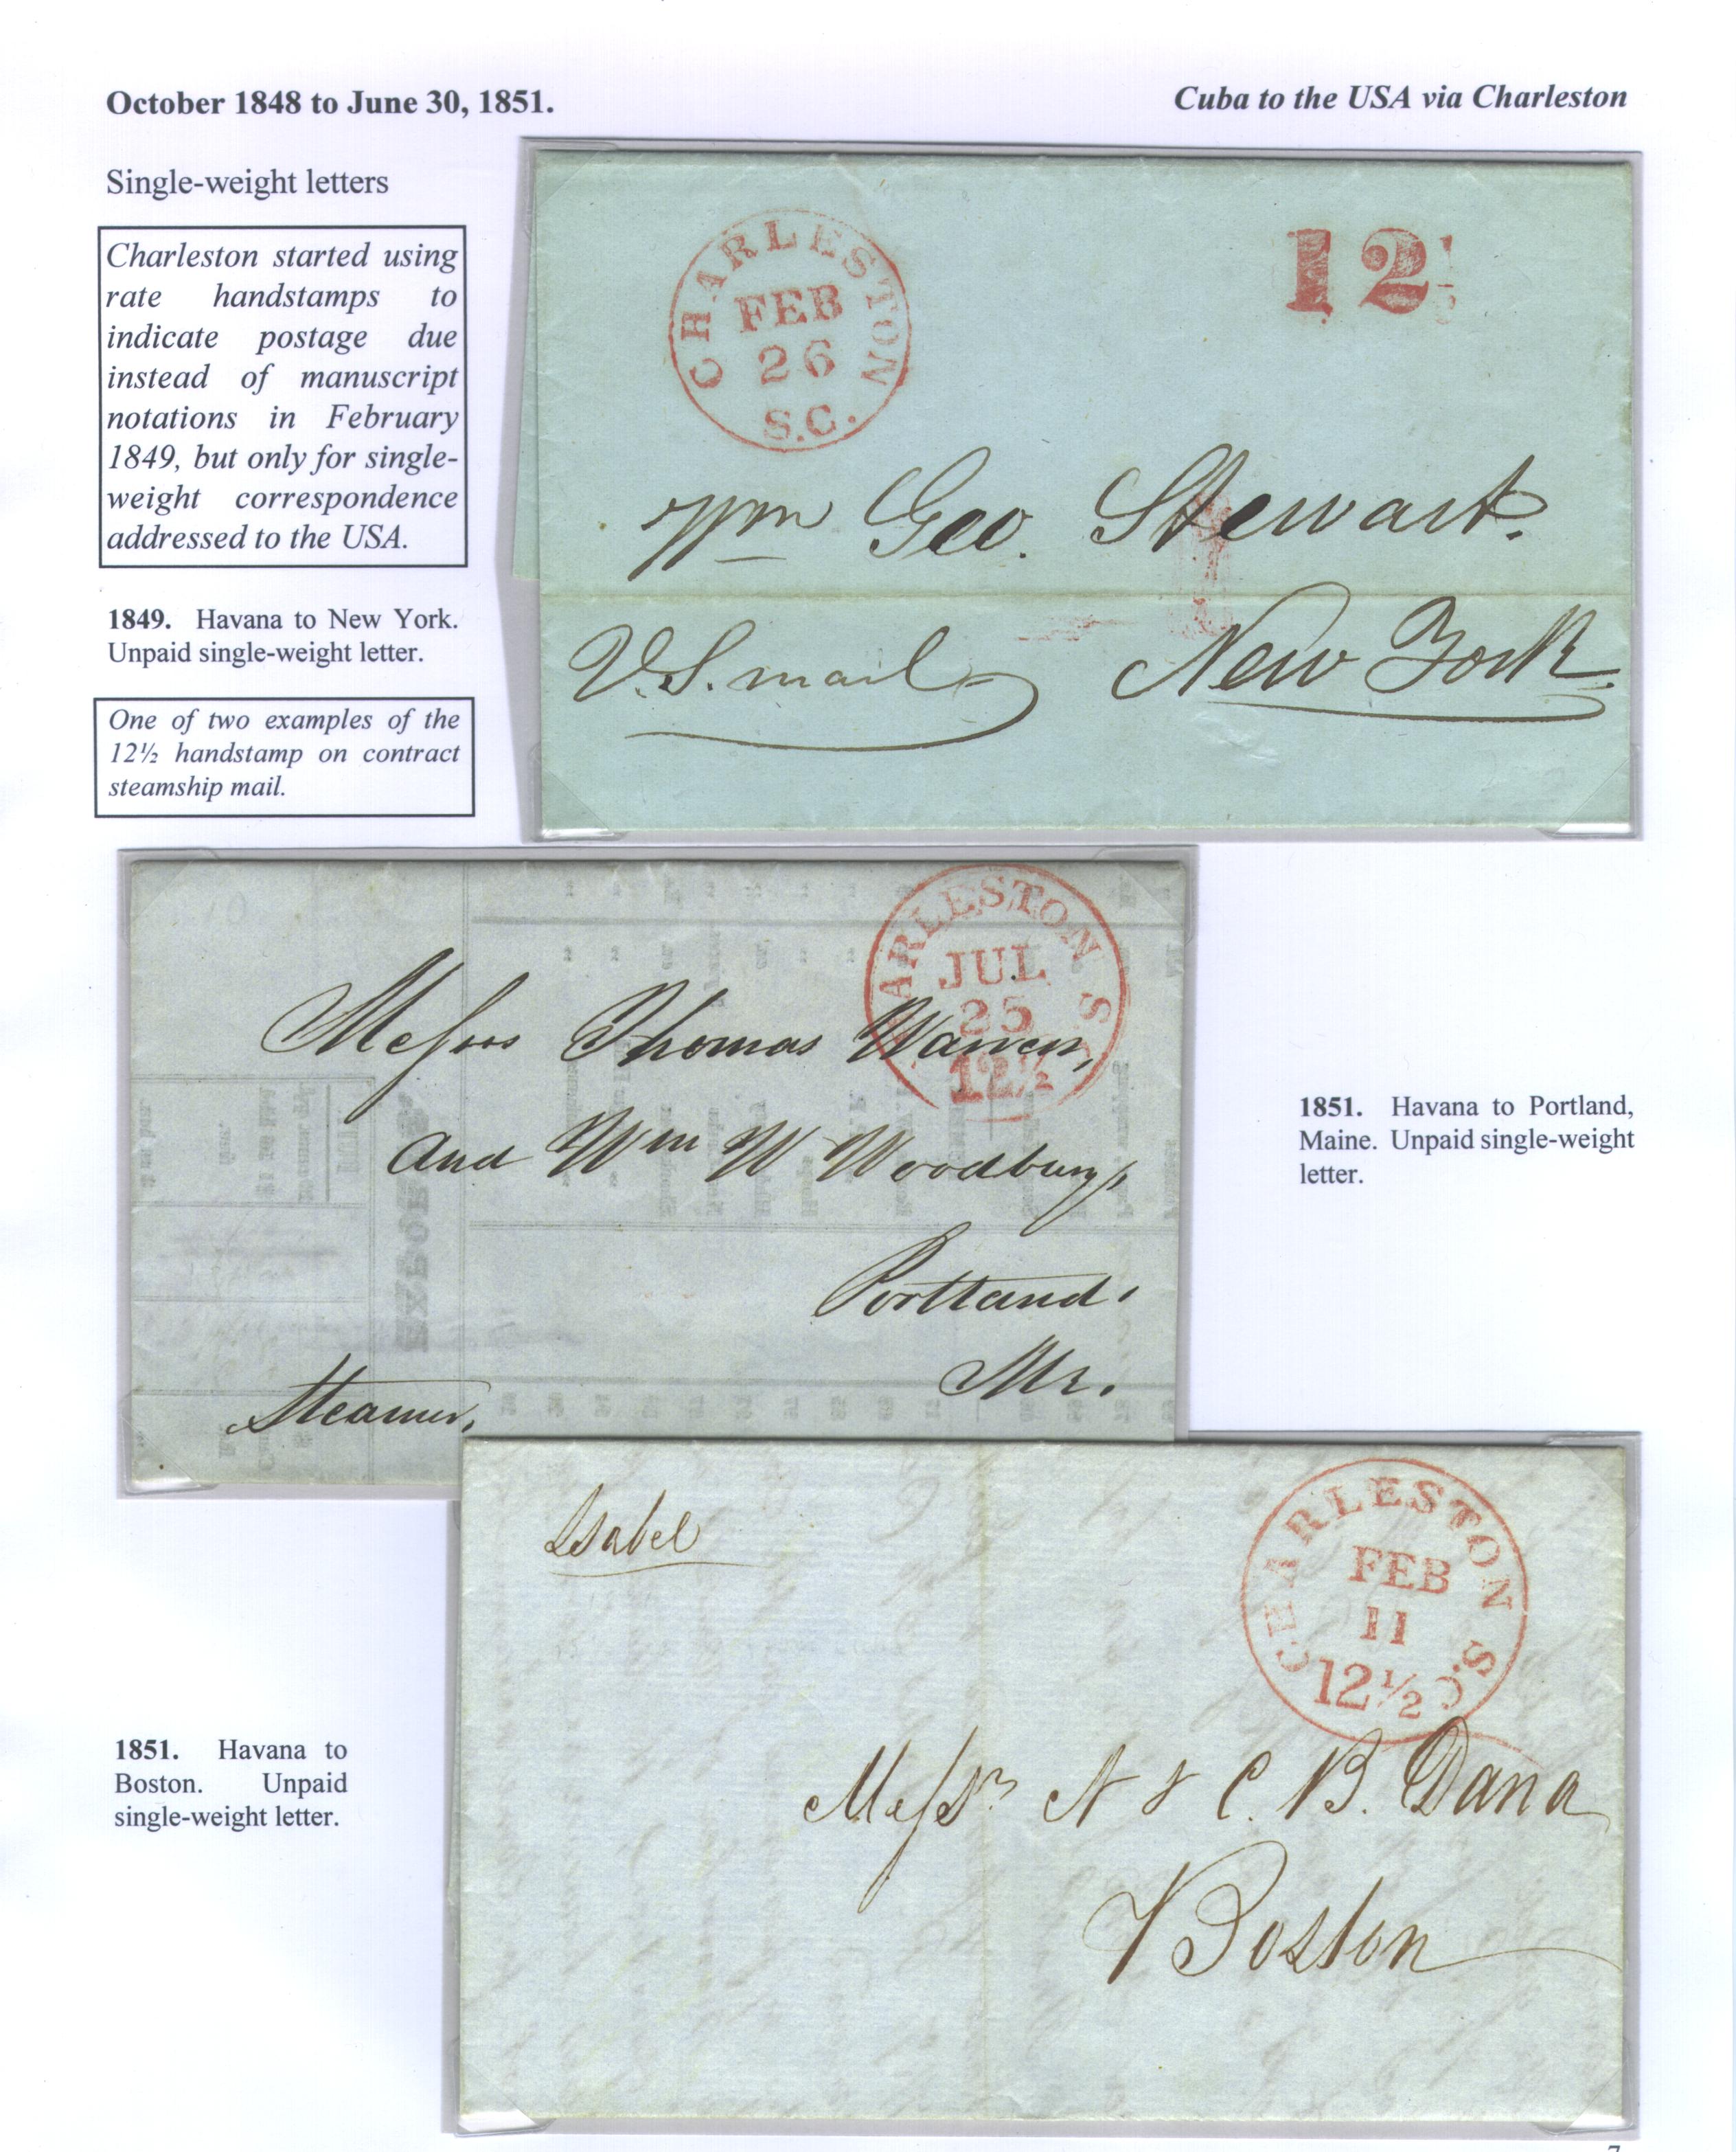 October 1848 to June 30, 1851.
Cuba to the USA via Charleston
Single-weight letters
Charleston started using
rate handstamps to
indicate postage due
instead of manuscript
notations in February
1849, but only for single-
weight correspondence
addressed to the USA.
1849. Havana to New York.
Unpaid single-weight letter.
One of two examples of the
12½ handstamp on contract
steamship mail.
CHARLESTON
FEB
26
S.C.
12½
Wm Geo. Stewart.
U.S. mail
New York.
ARLESTON S
JUL
25
12½
Messrs Thomas Warren,
and Wm W Woodbury,
Portland.
Me.
Steamer,
EXPORT
1851. Havana to Portland,
Maine. Unpaid single-weight
letter.
Isabel
CHARLESTON S.C.
FEB
11
12½
Messrs N & C. B. Dana
Boston
1851. Havana to
Boston. Unpaid
single-weight letter.